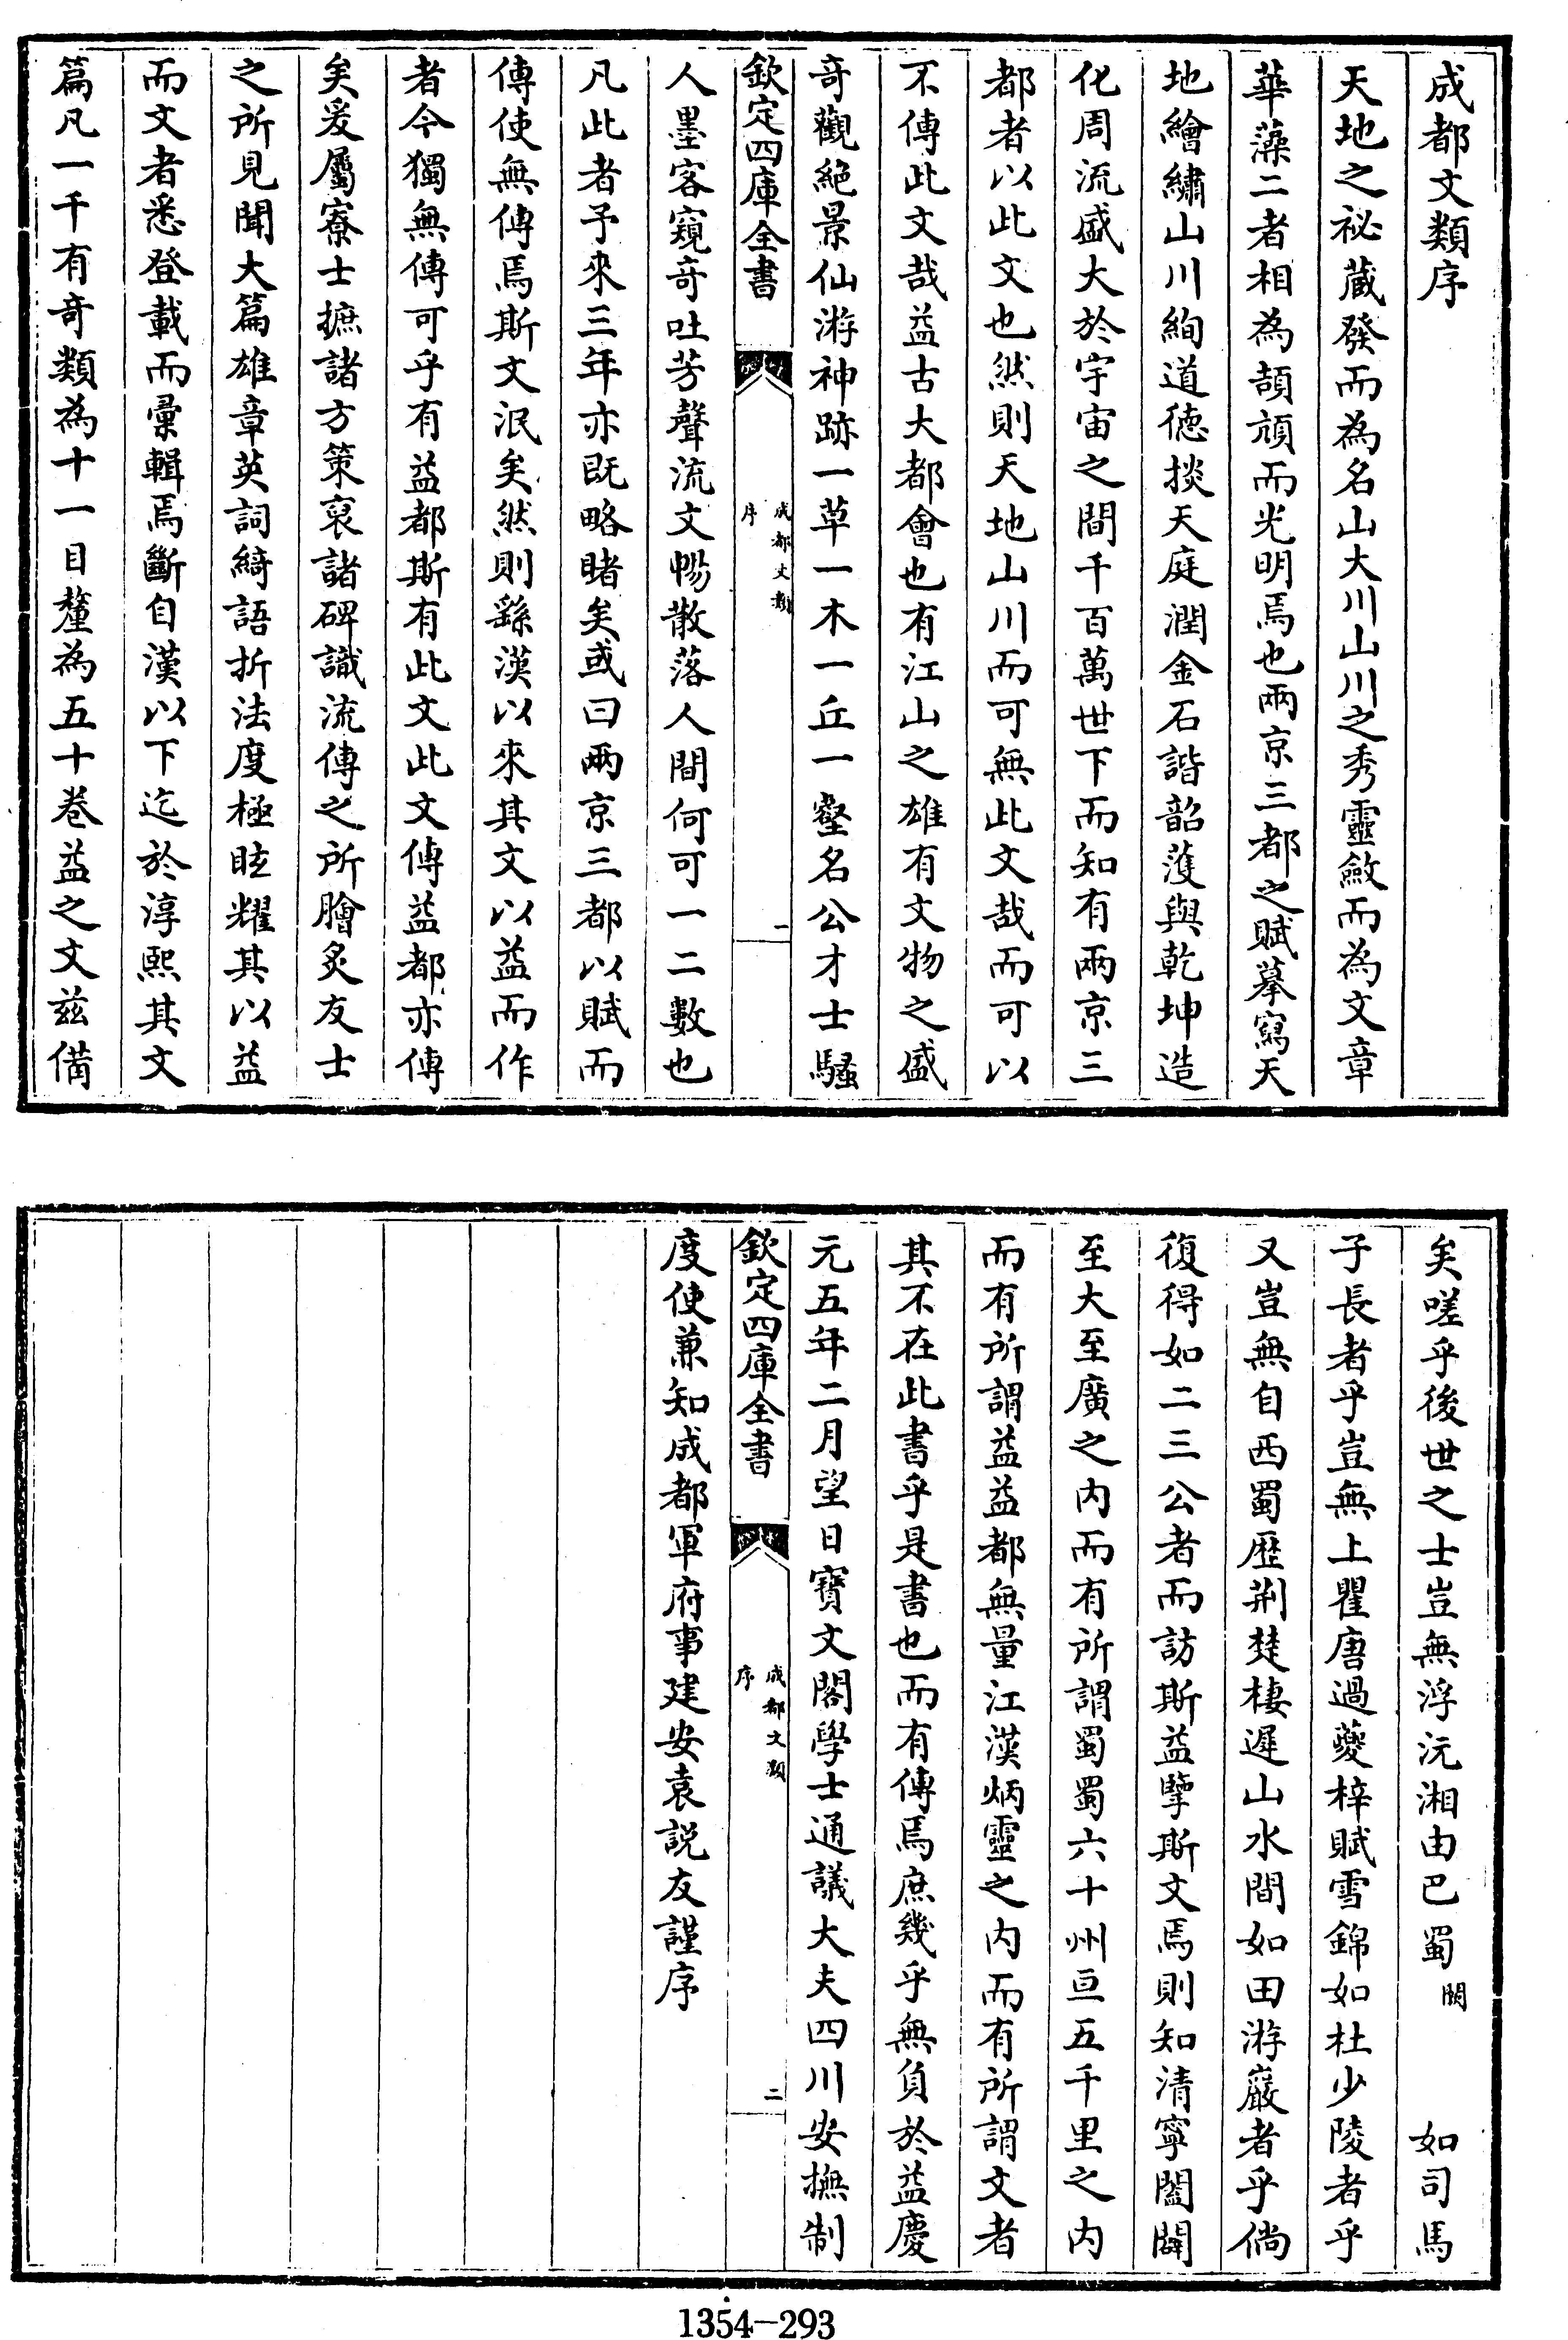 成都文類序
天地之祕藏發而為名山大川山川之秀靈斂而為文章
華藻二者相為頡頏而光明焉也兩京三都之賦摹寫天
地繪繡山川絢道德掞天庭潤金石諧韶濩與乾坤造
化周流盛大於宇宙之間千百萬世下而知有兩京三
都者以此文也然則天地山川而可無此文哉而可以
不傳此文哉益古大都會也有江山之雄有文物之盛
奇觀絶景仙游神跡一草一木一丘一壑名公才士騷
欽定四庫全書
成都文類
序
一
人墨客窺奇吐芳聲流文暢散落人間何可一二數也
凡此者予來三年亦既略睹矣或曰兩京三都以賦而
傳使無傳焉斯文泯矣然則繇漢以來其文以益而作
者今獨無傳可乎有益都斯有此文此文傳益都亦傳
矣爰屬寮士摭諸方策裒諸碑識流傳之所膾炙友士
之所見聞大篇雄章英詞綺語折法度極眩耀其以益
而文者悉登載而彙輯焉斷自漢以下迄於淳熙其文
篇凡一千有奇類為十一目釐為五十卷益之文兹備
矣嗟乎後世之士豈無浮沅湘由巴蜀闕如司馬
子長者乎豈無上瞿唐過夔梓賦雪錦如杜少陵者乎
又豈無自西蜀歴荆楚棲遲山水間如田游巖者乎倘
復得如二三公者而訪斯益擥斯文焉則知清寧闔闢
至大至廣之内而有所謂蜀蜀六十州亘五千里之内
而有所謂益益都無量江漢炳靈之内而有所謂文者
其不在此書乎是書也而有傳焉庶幾乎無負於益慶
元五年二月望日寶文閣學士通議大夫四川安撫制
欽定四庫全書
成都文類
序
二
度使兼知成都軍府事建安袁説友謹序
1354-293